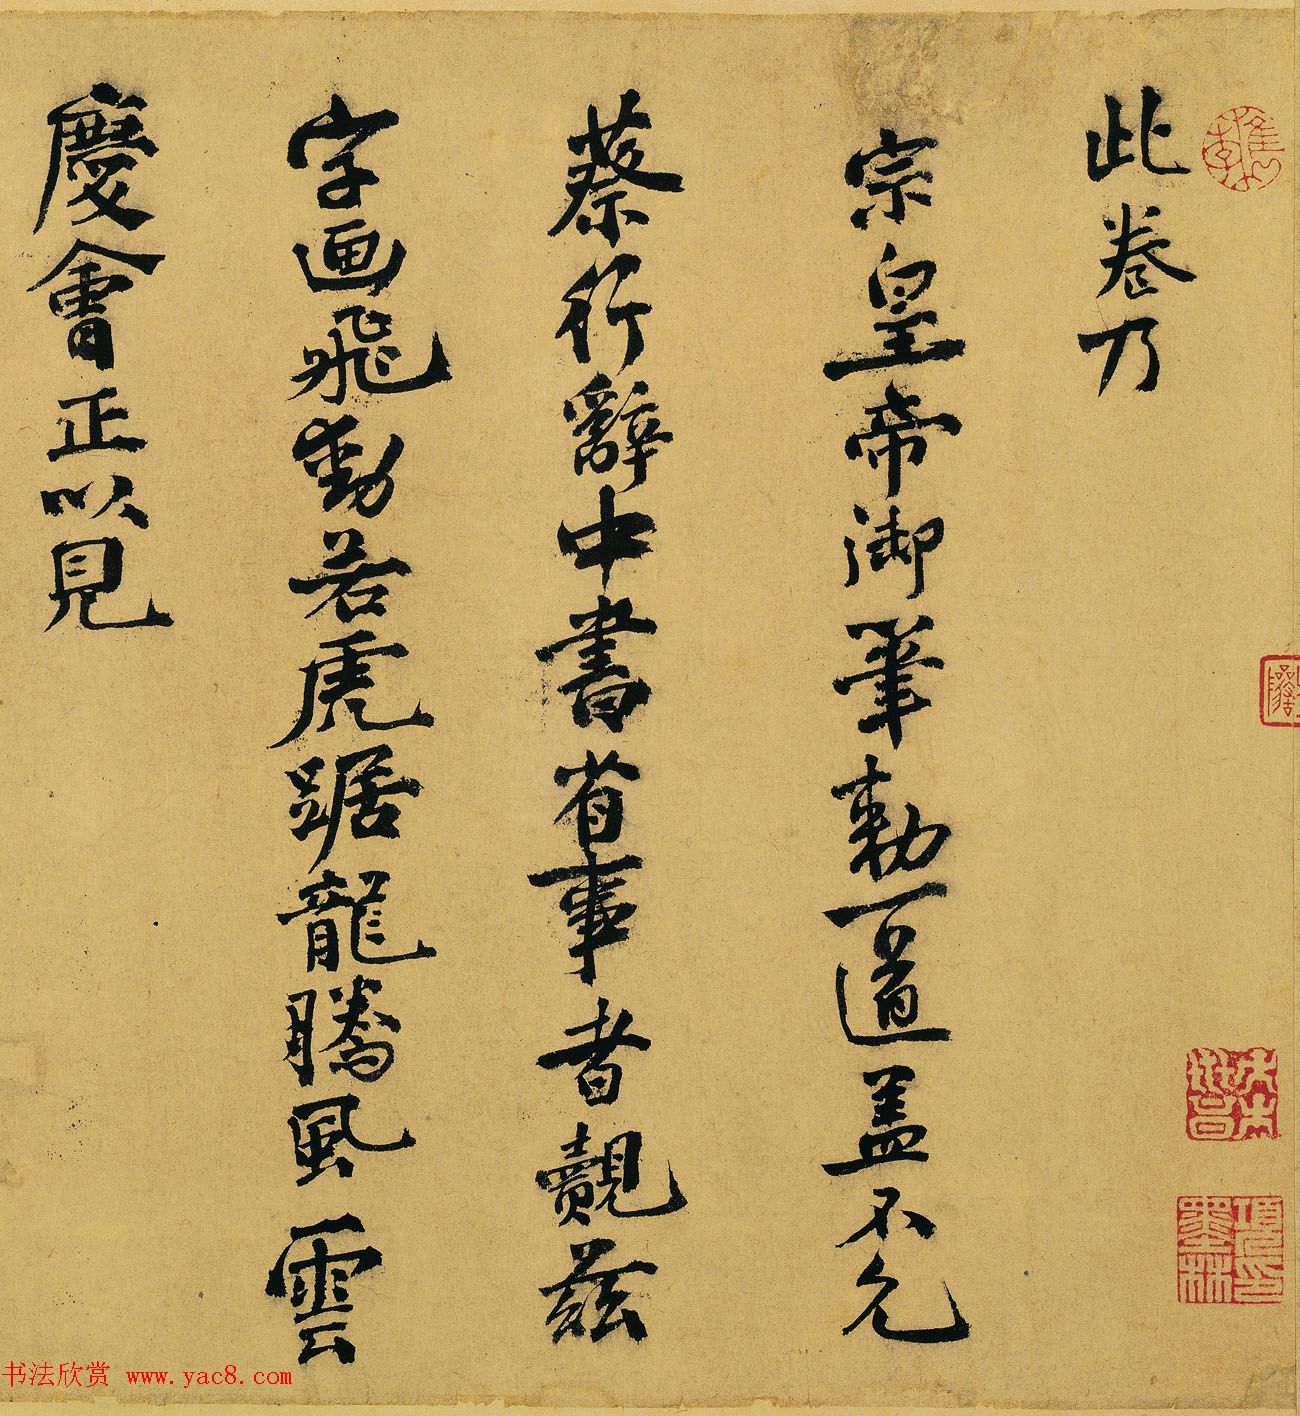 此卷乃
宗皇帝御筆勅一道盖不允
蔡行辭中書省事者觀茲
字画飛動若虎踞龍騰風雲
慶會正以見
项元汴印
墨林
书法欣赏 www.yac8.com